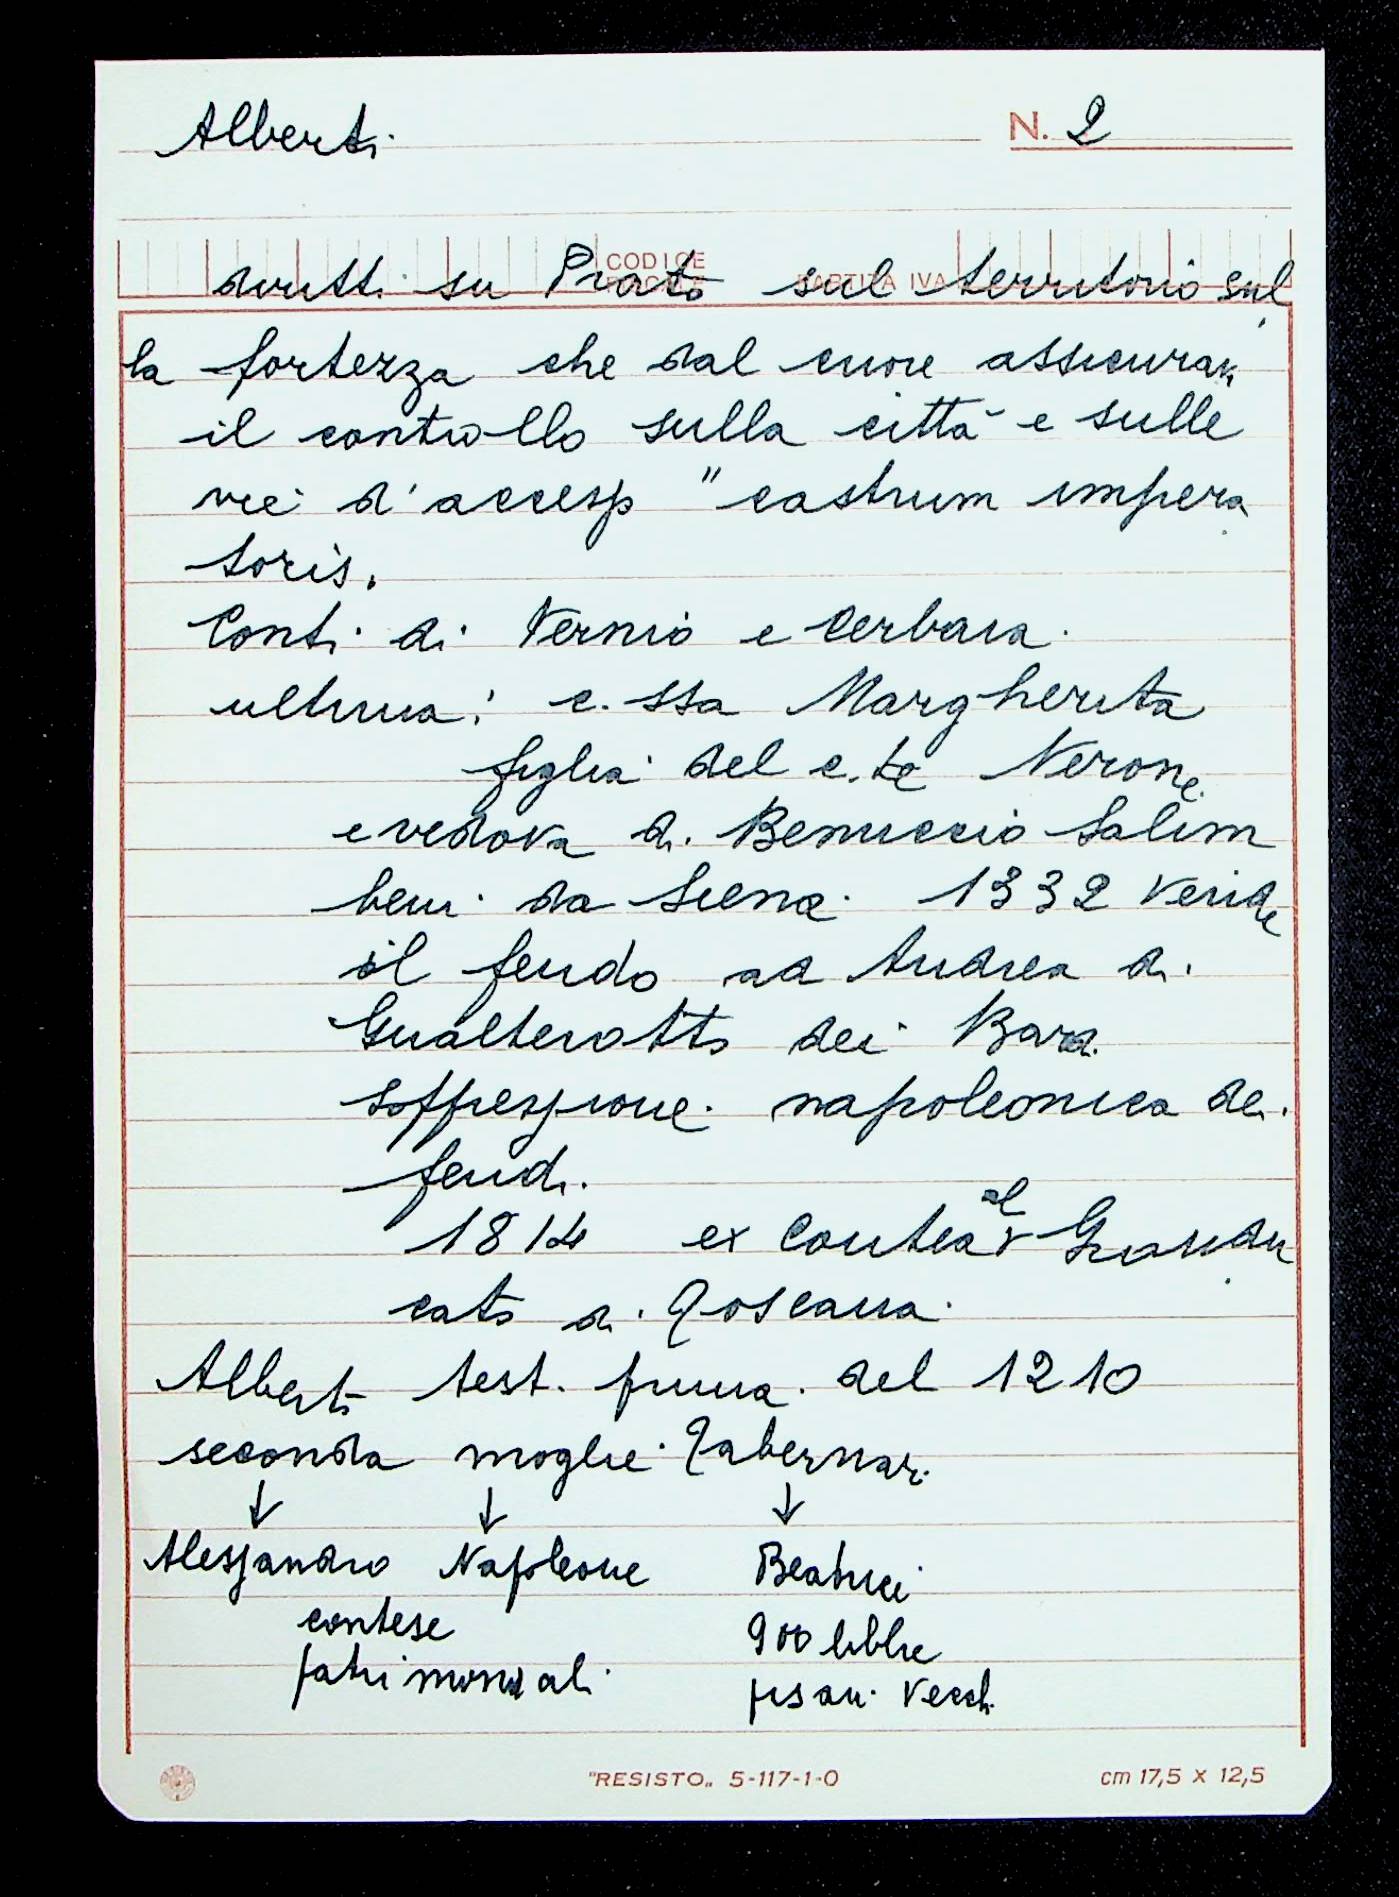 Alberti
N. 2
CODICE
PARTITA IVA
diritti su Prato sul territorio sul
la fortezza che dal cuore assicura
il controllo sulla città e sulle
vie d'accesso "castrum impera
toris.
Conti di Vernio e Cerbaia.
ultima: c.ssa Margherita
figlia del c.te Nerone
e vedova di Benuccio Salim
beni da Siena. 1332 vende
il feudo ad Andrea di
Gualterotto dei Bardi
soppressione napoleonica dei
feudi.
1814 ex Contea al Grandu
cato di Toscana.
Alberto test. prima del 1210
seconda moglie Tabernari
↓ ↓ ↓
Alessandro Napoleone Beatrice
contese 900 libbre
patrimoniali pisani vecchi
"RESISTO„ 5-117-1-0
cm 17,5 x 12,5